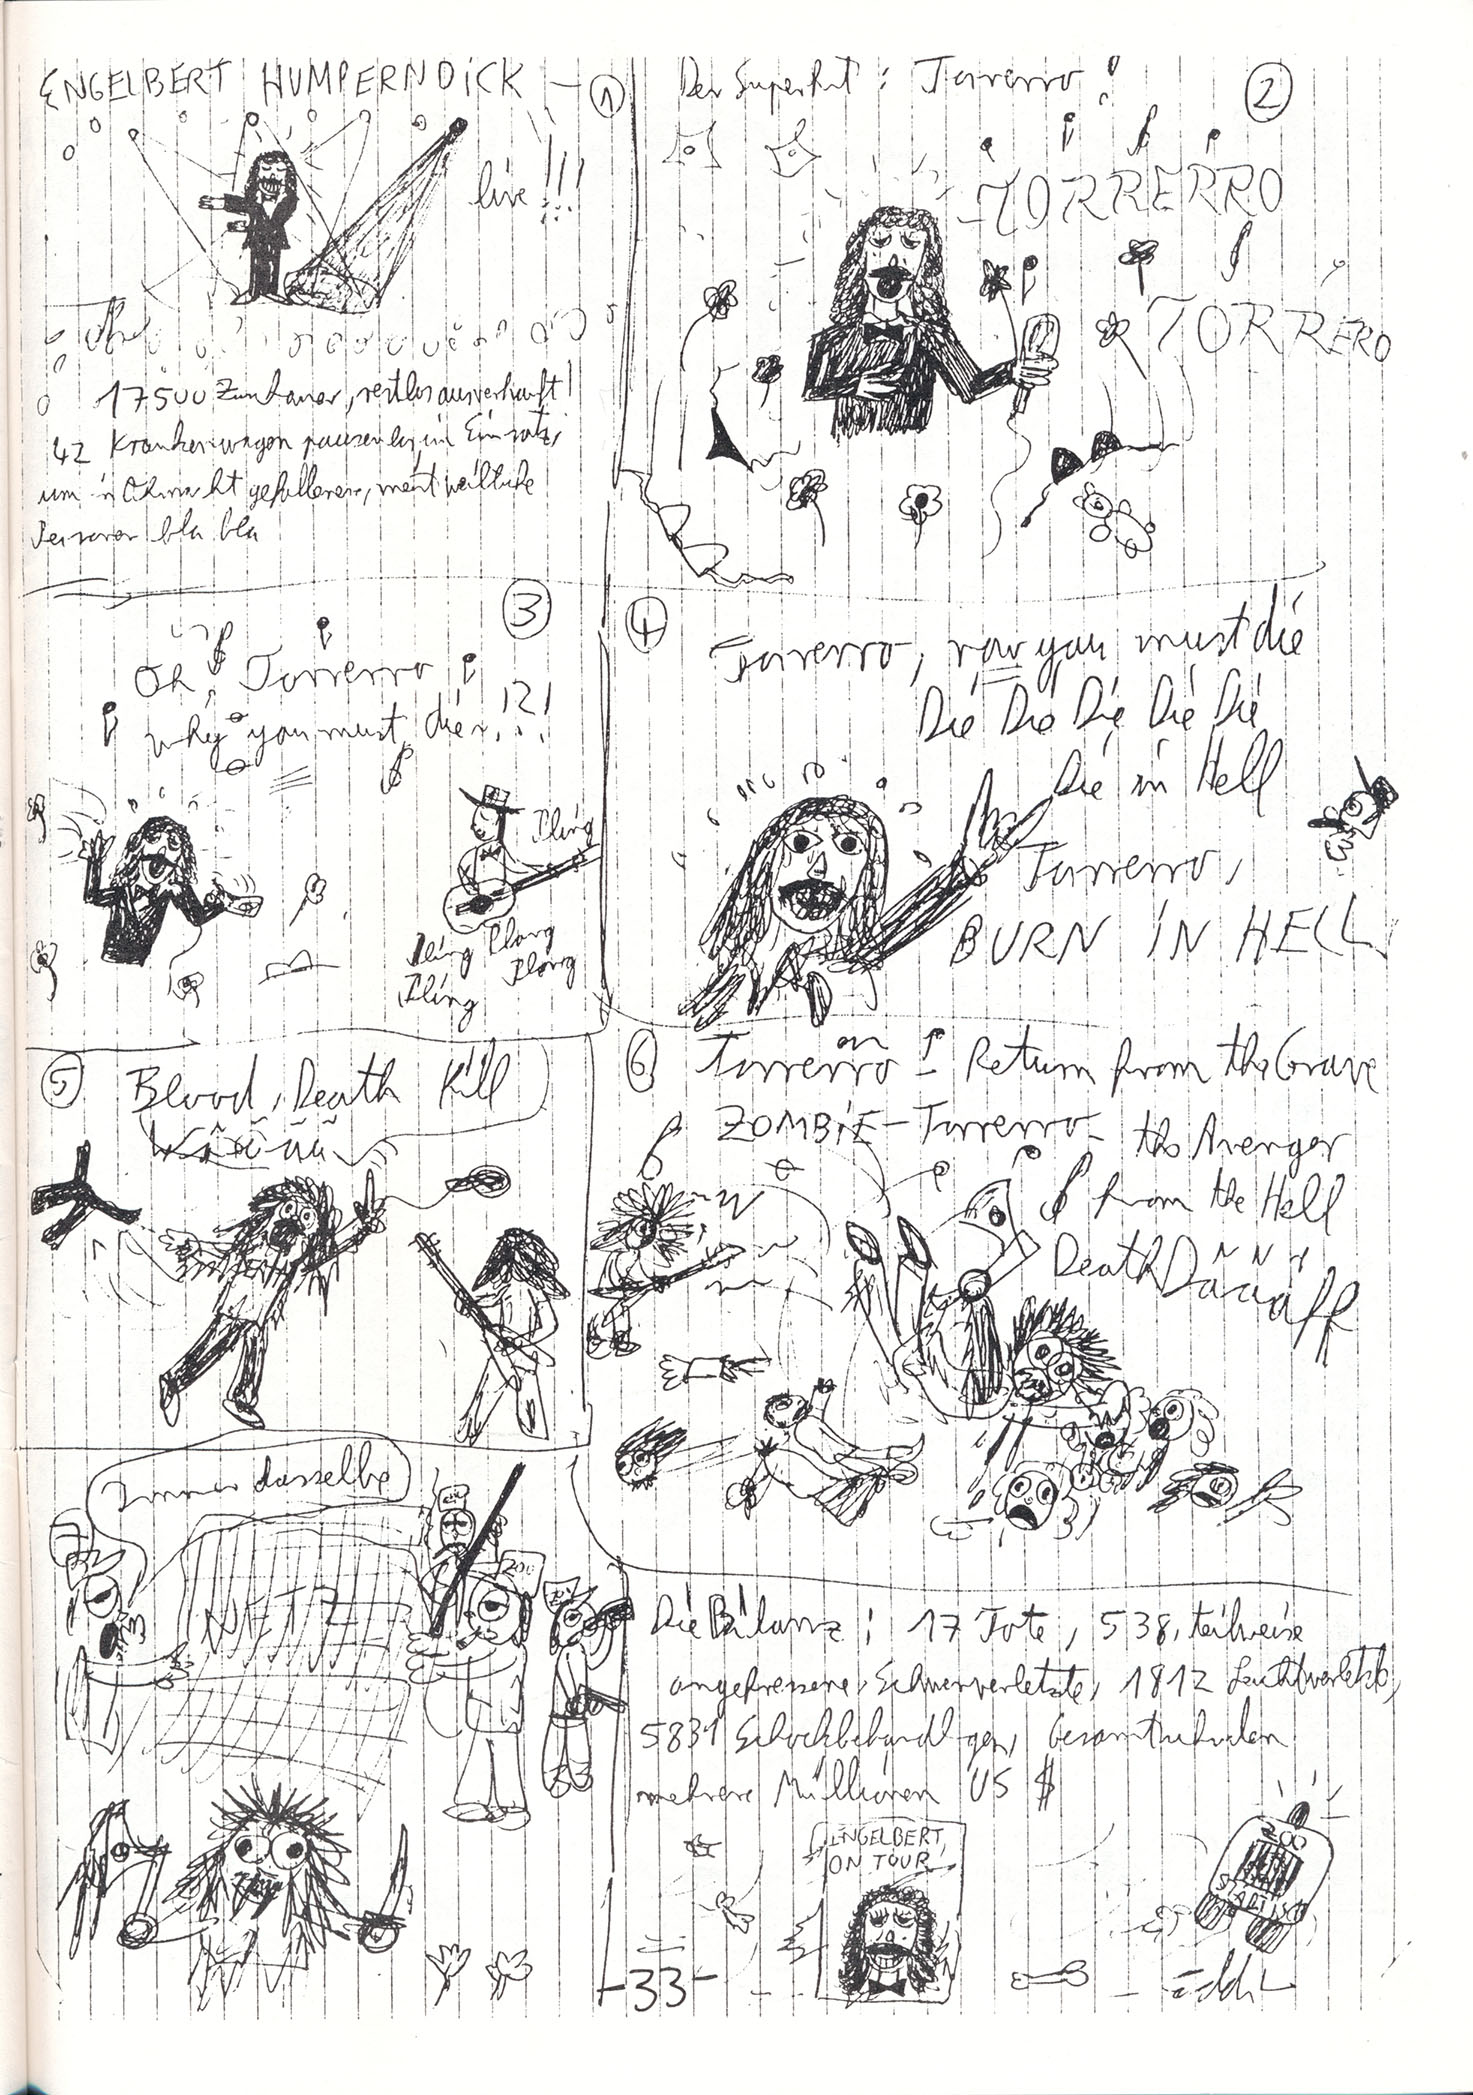 ENGELBERT HUMPERNDICK — 1
live!!!
17500 Zuschauer, restlos ausverkauft!
42 Krankenwagen pausenlos im Einsatz,
um in Ohnmacht gefallene, meist weibliche
Personen bla bla
Der Superhit: Torrerro! 2
TORRERRO
TORRERO
3
Oh, Torrerro
why you must die...?!
Pling
Pling Plong
Pling Plong
4
Torrerro, now you must die
Die Die Die Die Die
Die in Hell
Torrerro,
BURN IN HELL
5 Blood, Death Kill
6 Torrerro Return from the Grave
ZOMBIE-Torrerro the Avenger
from the Hell
Death Däääff
7
Immer dasselbe
NETZ
ZOO
ZOO
Die Bilanz: 17 Tote, 538, teilweise
angefressene, Schwerverletzte, 1812 Leichtverletzte,
5831 Schockbehandlgen, Gesamtschaden
mehrere Millionen US $
ENGELBERT
ON TOUR
ZOO
-33-